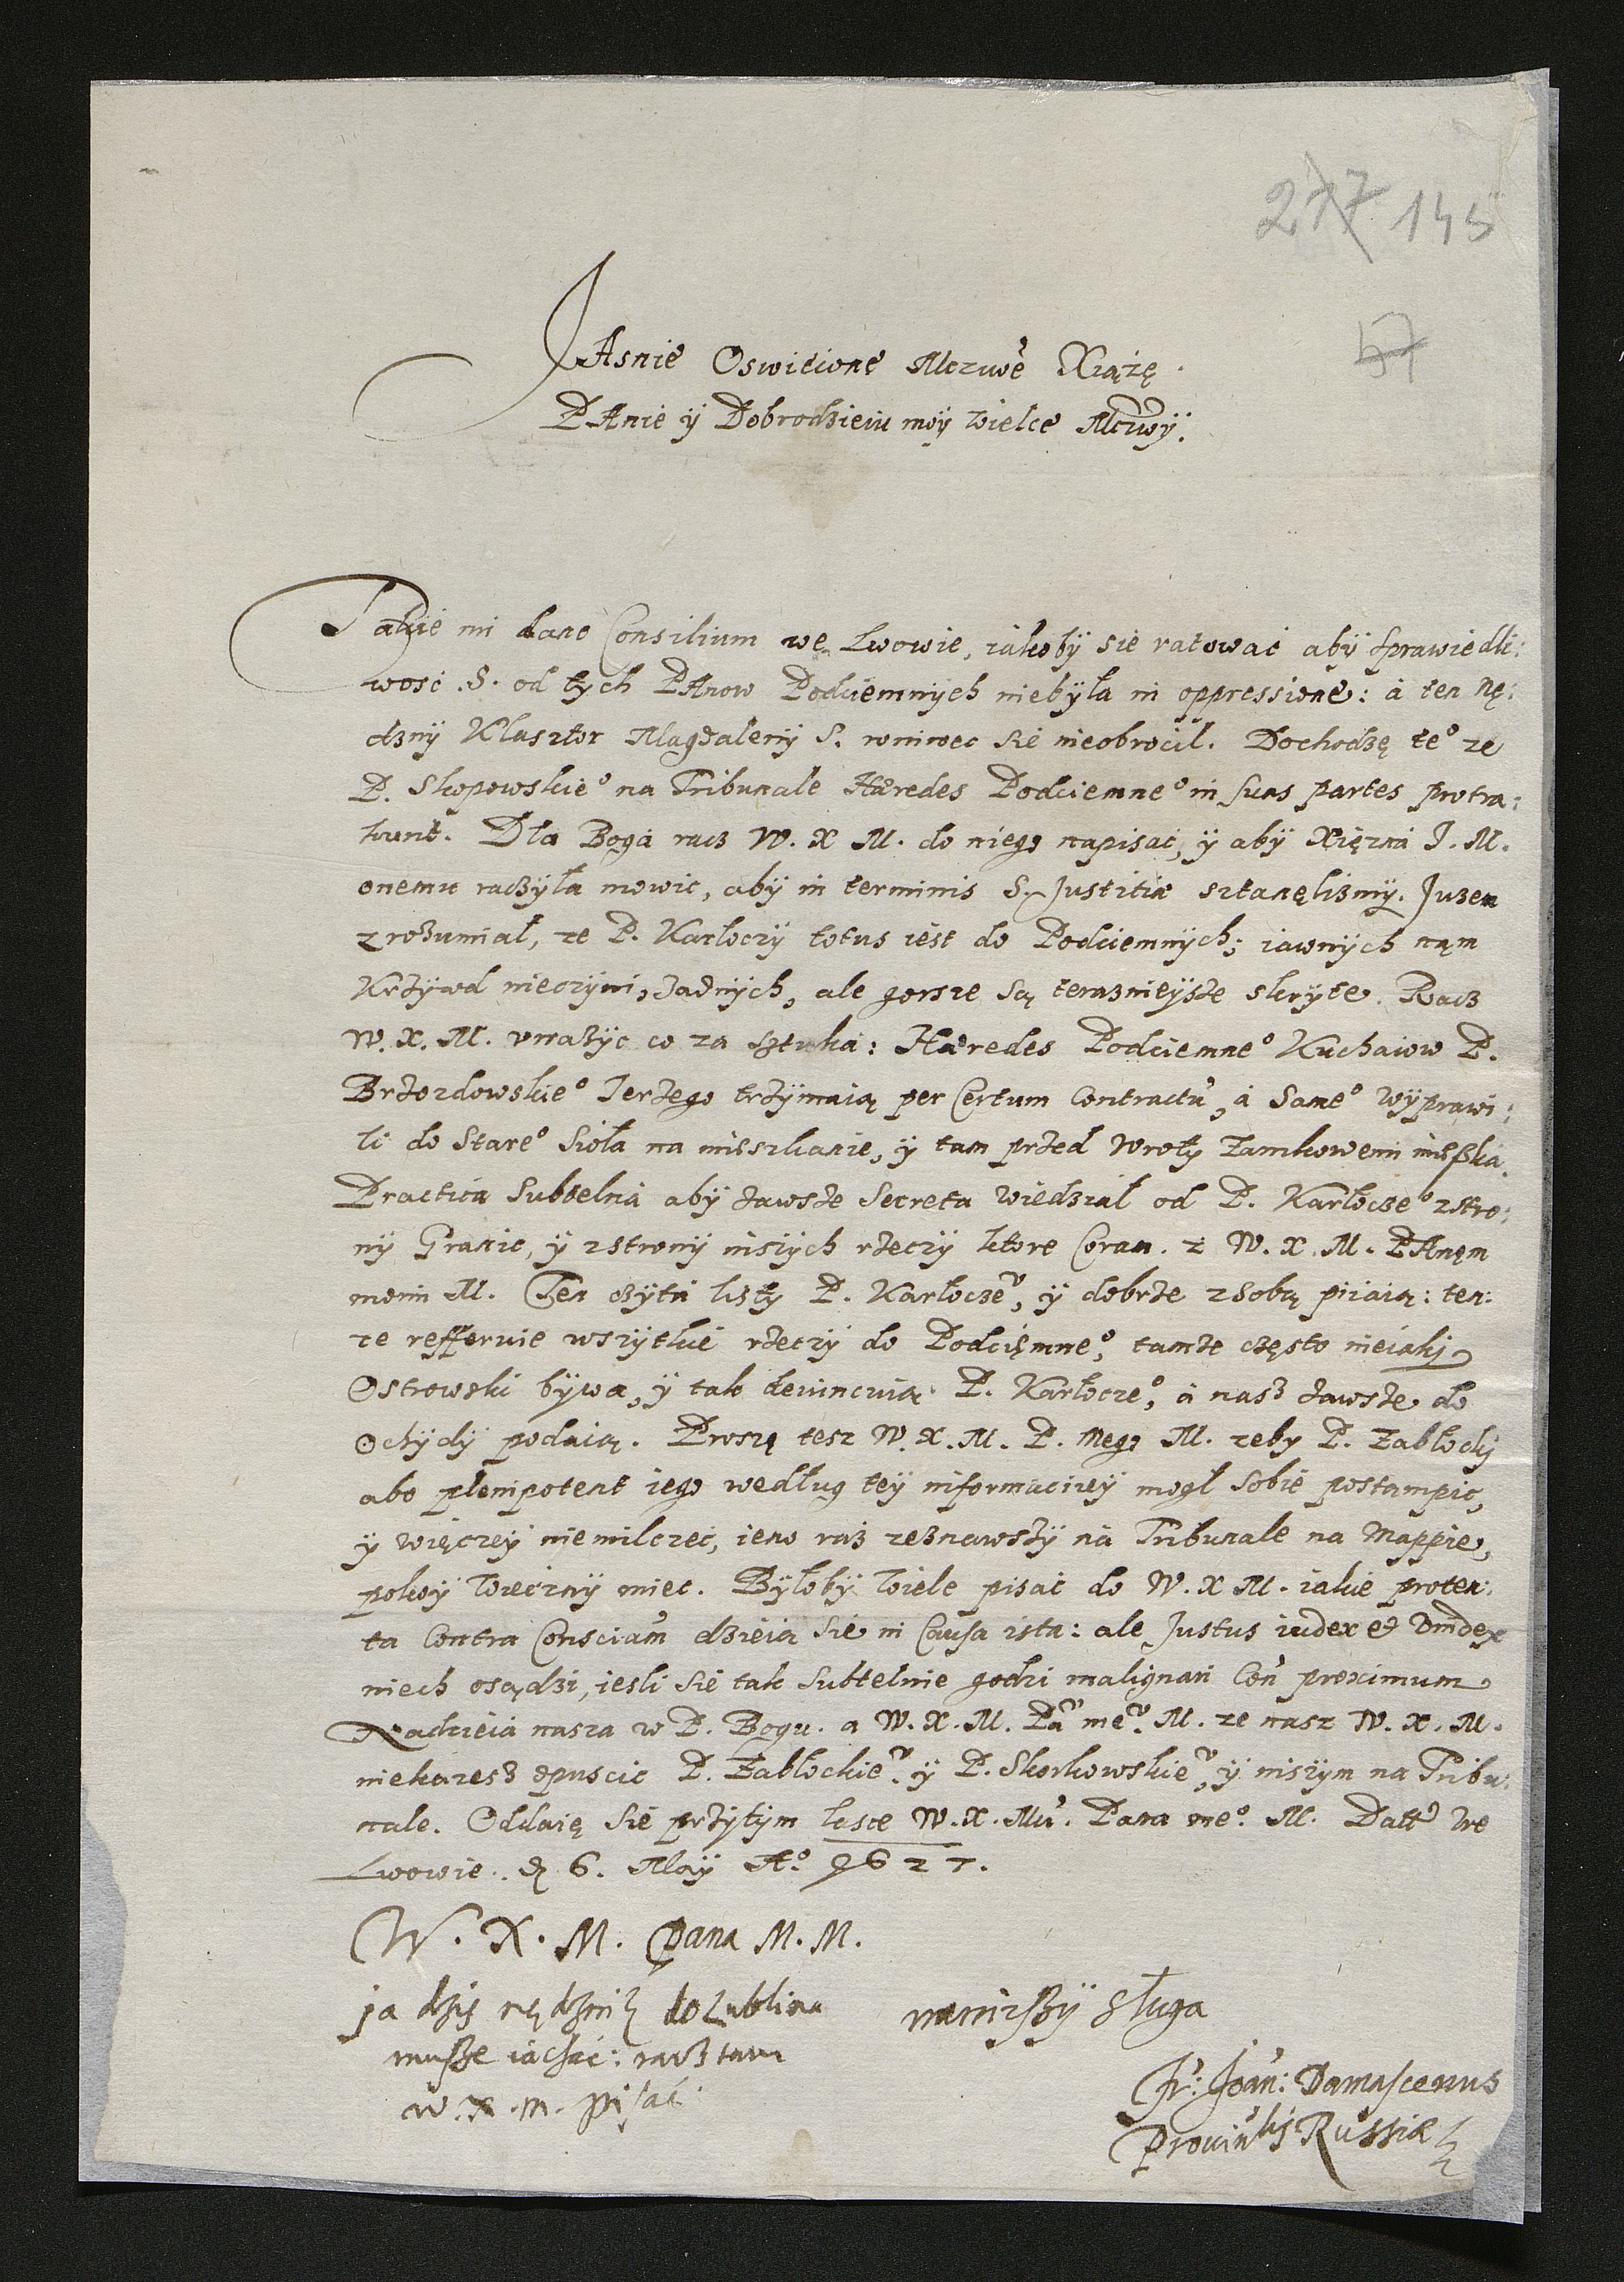 277 145
57
JAsnie Oswiecione Mczwe Xiążę.
PAnie ÿ Dobrodzieiu moÿ wielce Mczwÿ.
Takie mi dano Consilium we Lwowie, iakobÿ sie ratować abÿ sprawiedli:
wosc .S. od tÿch PAnow Podciemnÿch niebÿla in oppressione: á ten nę:
dznÿ Klasztor Magdalenÿ S. wniwec sie nieobrocil. Dochodzę te° ze
P. Skopowskie° na Tribunale Hæredes Podciemne° in suas partes protra:
hunt. Dla Boga racz W. X M. do niego napisać, ÿ abÿ Xięzna J. M.
onemu raczÿła mowic, abÿ in terminis S. Justitiæ sztanęlismÿ. Juzem
zrozumiał, ze P. Karłoczÿ totus iest do Podciemnÿch; iawnÿch nąm
Krzÿwd nieczÿni, żadnÿch, ale gorsze są teraznieÿsze skrÿte. Racz
W. X. M. vwazÿc co za sztuka: Hæredes Podciemne° Kuchaiow P.
Brzozdowskie° Jerzego trzÿmaią per Certum Contractũ, á Same° wÿprawi:
li do Stare° Sioła na mieszkanie, ÿ tam przed wrotÿ Zamkowemi mieszka.
Practica Subtelna abÿ zawsze Secreta wiedział od P. Karłocze° zstro:
nÿ Granic, ÿ zstronÿ inszÿch rzeczÿ ktore Coram. z W. X. M. PAnęm
moim M. Ten czÿta listÿ P. Karłocze°, ÿ dobrze zsobą piiaią: ten:
ze refferuie wszÿtkie rzeczÿ do Podciemne°, tamże często nieiakj
Ostrowski bÿwa, ÿ tak deuincuią P. Karłocze°, á nasz zawsze do
Ochÿdÿ podaią. Proszę tesz W. X. M. P. mego M. zeby P. Zabłockÿ
abo plenipotent iego według teÿ informacieÿ mogł sobie postampic,
ÿ więczeÿ niemilczeć, ieno raz zeznawszÿ na Tribunale na Mappie,
pokoÿ wiecznÿ miec. Bÿłobÿ wiele pisać do W. X M. iakie proten:
ta Contra Consciam̃ dzieią sie in Causa ista: ale Justus iudex et Vindex
niech osądzi, iesli sie tak subtelnie godzi malignari Coñ proximum
Nadzieia nasza w P. Bogu. a W. X. M. Pã me°. M. ze nasz W. X. M.
niekazesz opuscic P. Zabłockie° ÿ P. Skorkowskie°, ÿ inszÿm na Tribu:
nale. Oddaię sie przÿtÿm łasce W. X. Mci. Pana me°. M. Datt we
Lwowie. d 6. Maÿ A° 1627.
W. X. M. Pana M. M.
ja dziś nędznik do Lublina
muszę iachać: racz tam
w. x. m. pisać.
naniższÿ sługa
Fr: Joañ: Damascenus
Prouiñlis Russiæ